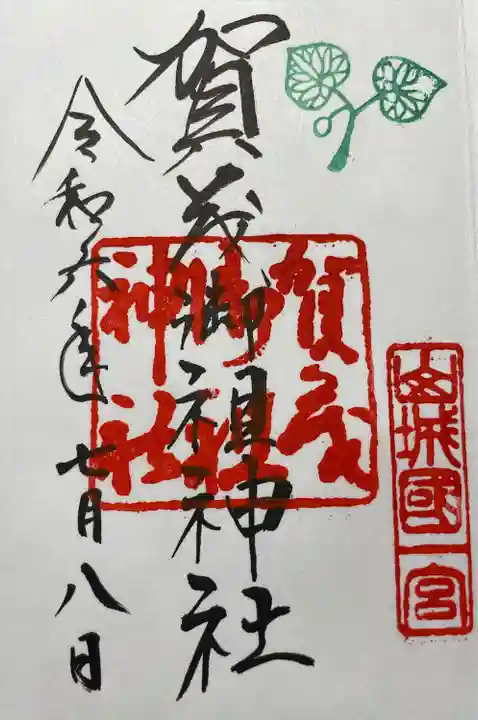 山城國一宮
賀茂御祖神社
賀茂御祖神社
令和六年七月八日